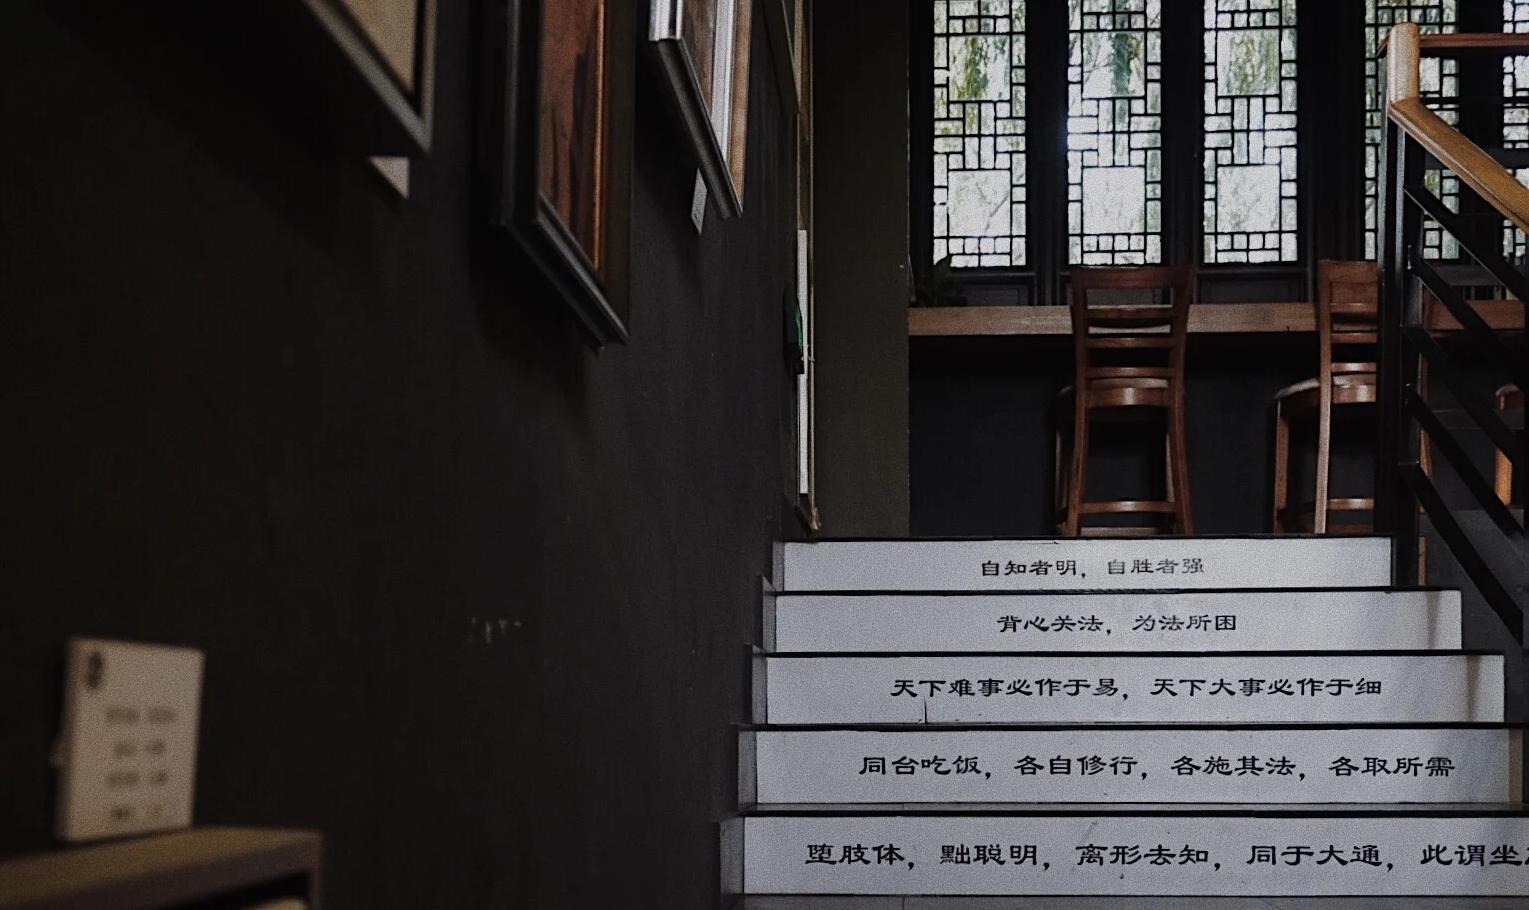 自知者明，自胜者强
背心关法，为法所困
天下难事必作于易，天下大事必作于细
同台吃饭，各自修行，各施其法，各取所需
堕肢体，黜聪明，离形去知，同于大通，此谓坐